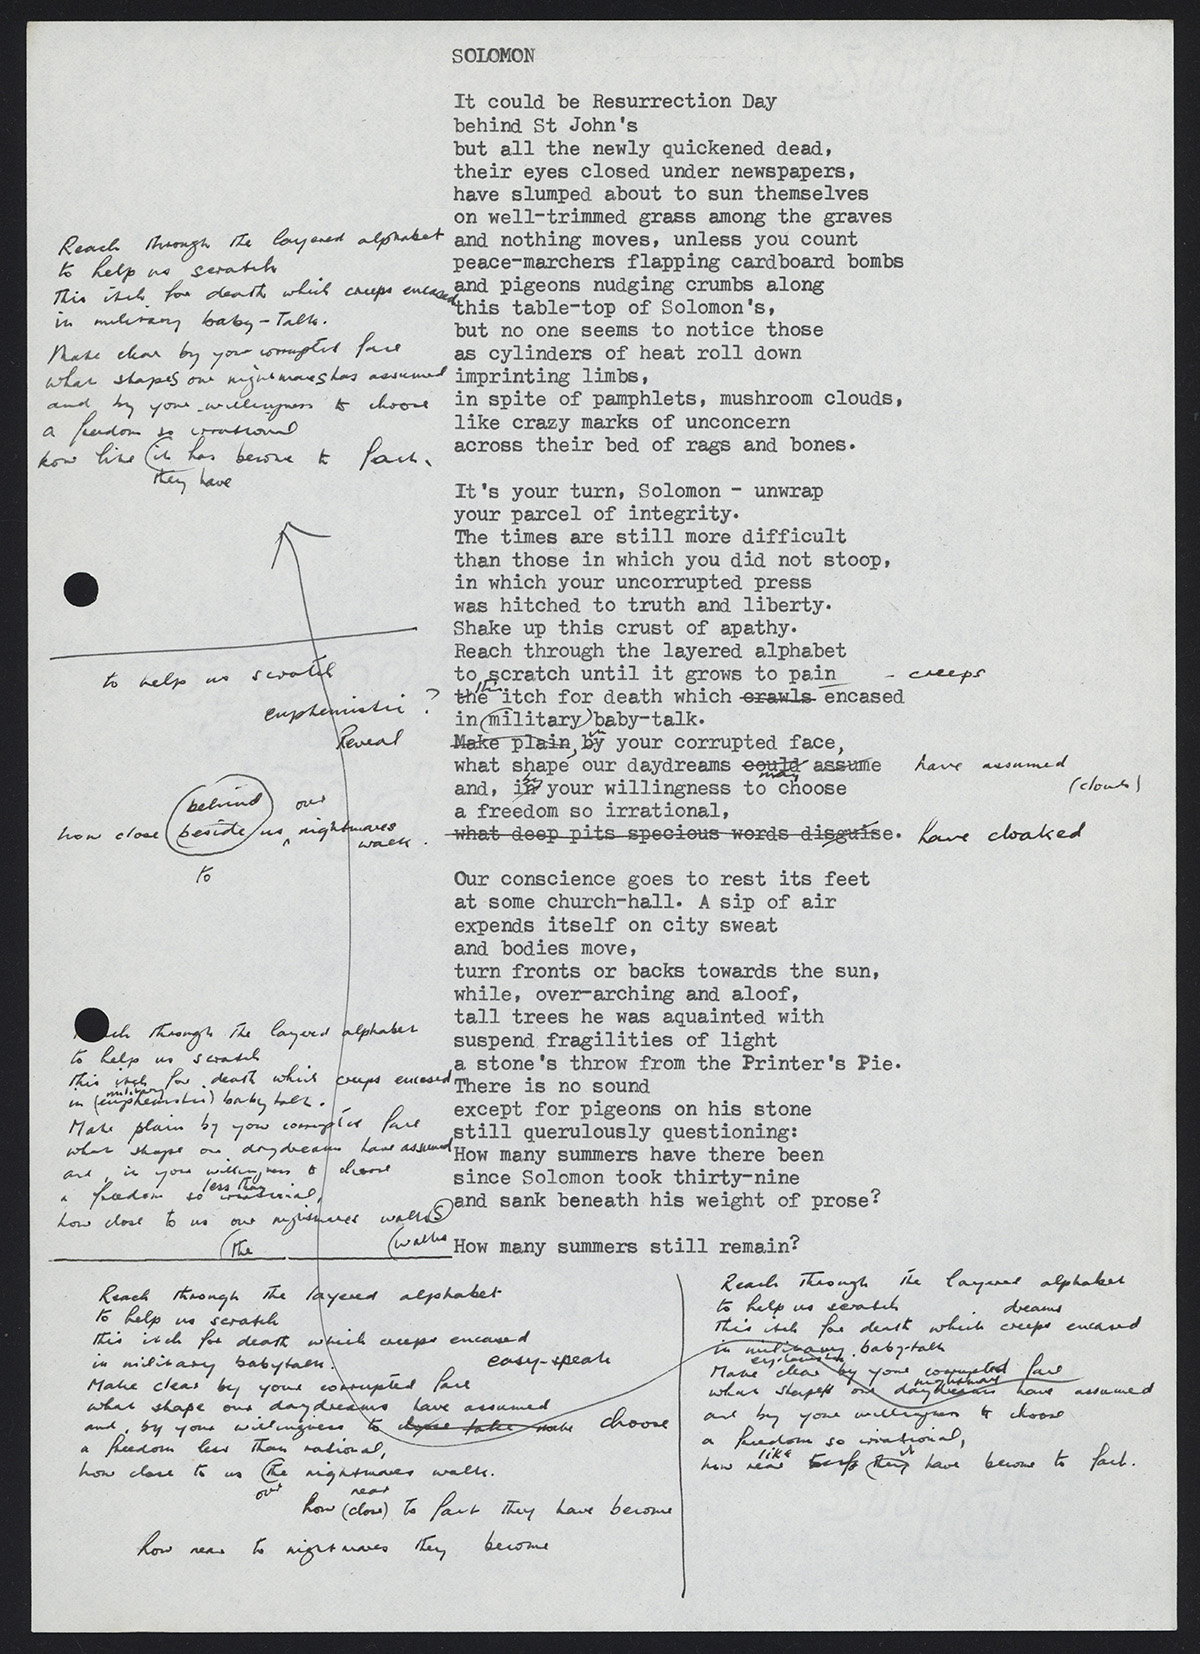 SOLOMON
It could be Resurrection Day
behind St John's
but all the newly quickened dead,
their eyes closed under newspapers,
have slumped about to sun themselves
on well-trimmed grass among the graves
and nothing moves, unless you count
peace-marchers flapping cardboard bombs
and pigeons nudging crumbs along
this table-top of Solomon's,
but no one seems to notice those
as cylinders of heat roll down
imprinting limbs,
in spite of pamphlets, mushroom clouds,
like crazy marks of unconcern
across their bed of rags and bones.
It's your turn, Solomon - unwrap
your parcel of integrity.
The times are still more difficult
than those in which you did not stoop,
in which your uncorrupted press
was hitched to truth and liberty.
Shake up this crust of apathy.
Reach through the layered alphabet
to scratch until it grows to pain - creeps
the this itch for death which crawls encased
in (military) baby-talk.
Make plain, by your corrupted face,
what shape our daydreams could may assume have assumed
and, in by your willingness to choose (clouds)
a freedom so irrational,
what deep pits specious words disguise. have cloaked
Our conscience goes to rest its feet
at some church-hall. A sip of air
expends itself on city sweat
and bodies move,
turn fronts or backs towards the sun,
while, over-arching and aloof,
tall trees he was aquainted with
suspend fragilities of light
a stone's throw from the Printer's Pie.
There is no sound
except for pigeons on his stone
still querulously questioning:
How many summers have there been
since Solomon took thirty-nine
and sank beneath his weight of prose?
How many summers still remain?
Reach through the layered alphabet
to help us scratch
this itch for death which creeps encased
in military baby-talk.
Make clear by your corrupted face
what shapes our nightmares has assumed
and by your willingness to choose
a freedom so irrational
how like (it has become to fact.
they have
to help us scratch
euphemistic ?
Reveal
(behind) our
how close (beside) us nightmares
walk.
to
Reach through the layered alphabet
to help us scratch
this itch for death which creeps encased
military
in (euphemistic) baby talk.
Make plain by your corrupted face
what shape our daydreams have assumed
and, in your willingness to choose
less than
a freedom so irrational,
how close to us our nightmares walks
(the (walks
Reach through the layered alphabet
to help us scratch
this itch for death which creeps encased
in military babytalk. easy-speak
Make clear by your corrupted face
what shape our daydreams have assumed
and, by your willingness to take make choose
a freedom less than rational,
how close to us (the nightmares walk.
our near
how (close) to fact they have become
how near to nightmares they become
Reach through the layered alphabet
to help us scratch dreams
this itch for death which creeps encased
in military baby-talk
euphemistic
Make clear by your corrupted face
nightmares
what shapes our daydreams have assumed
and by your willingness to choose
a freedom so irrational,
like it
how near (they have become to fact.